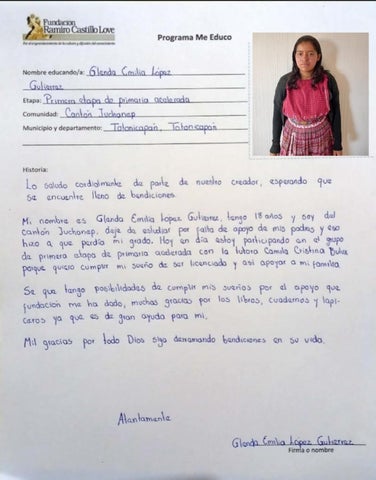 Fundación
Ramiro Castillo Love
Programa Me Educo
Nombre educando/a: Glenda Emilia López
Gutierrez
Etapa: Primera etapa de primaria acelerada
Comunidad: Cantón Juchanep
Municipio y departamento: Totonicapán, Totonicapán
Historia:
Lo saludo cordialmente de parte de nuestro creador, esperando que
se encuentre lleno de bendiciones.
Mi nombre es Glenda Emilia López Gutierrez, tengo 18 años y soy del
cantón Juchanep, deje de estudiar por falta de apoyo de mis padres y eso
hizo a que perdía mi grado. Hoy en día estoy participando en el grupo
de primera etapa de primaria acelerada con la tutora Camila Cristina
porque quiero cumplir mi sueño de ser licenciada y así apoyar a mi familia
Se que tengo posibilidades de cumplir mis sueños por el apoyo que
fundación me ha dado, muchas gracias por los libros, cuadernos y lapi-
ceros ya que es de gran ayuda para mi.
Mil gracias por todo Dios siga derramando bendiciones en su vida.
Atentamente
Glenda Emilia López Gutierrez
Firma o nombre